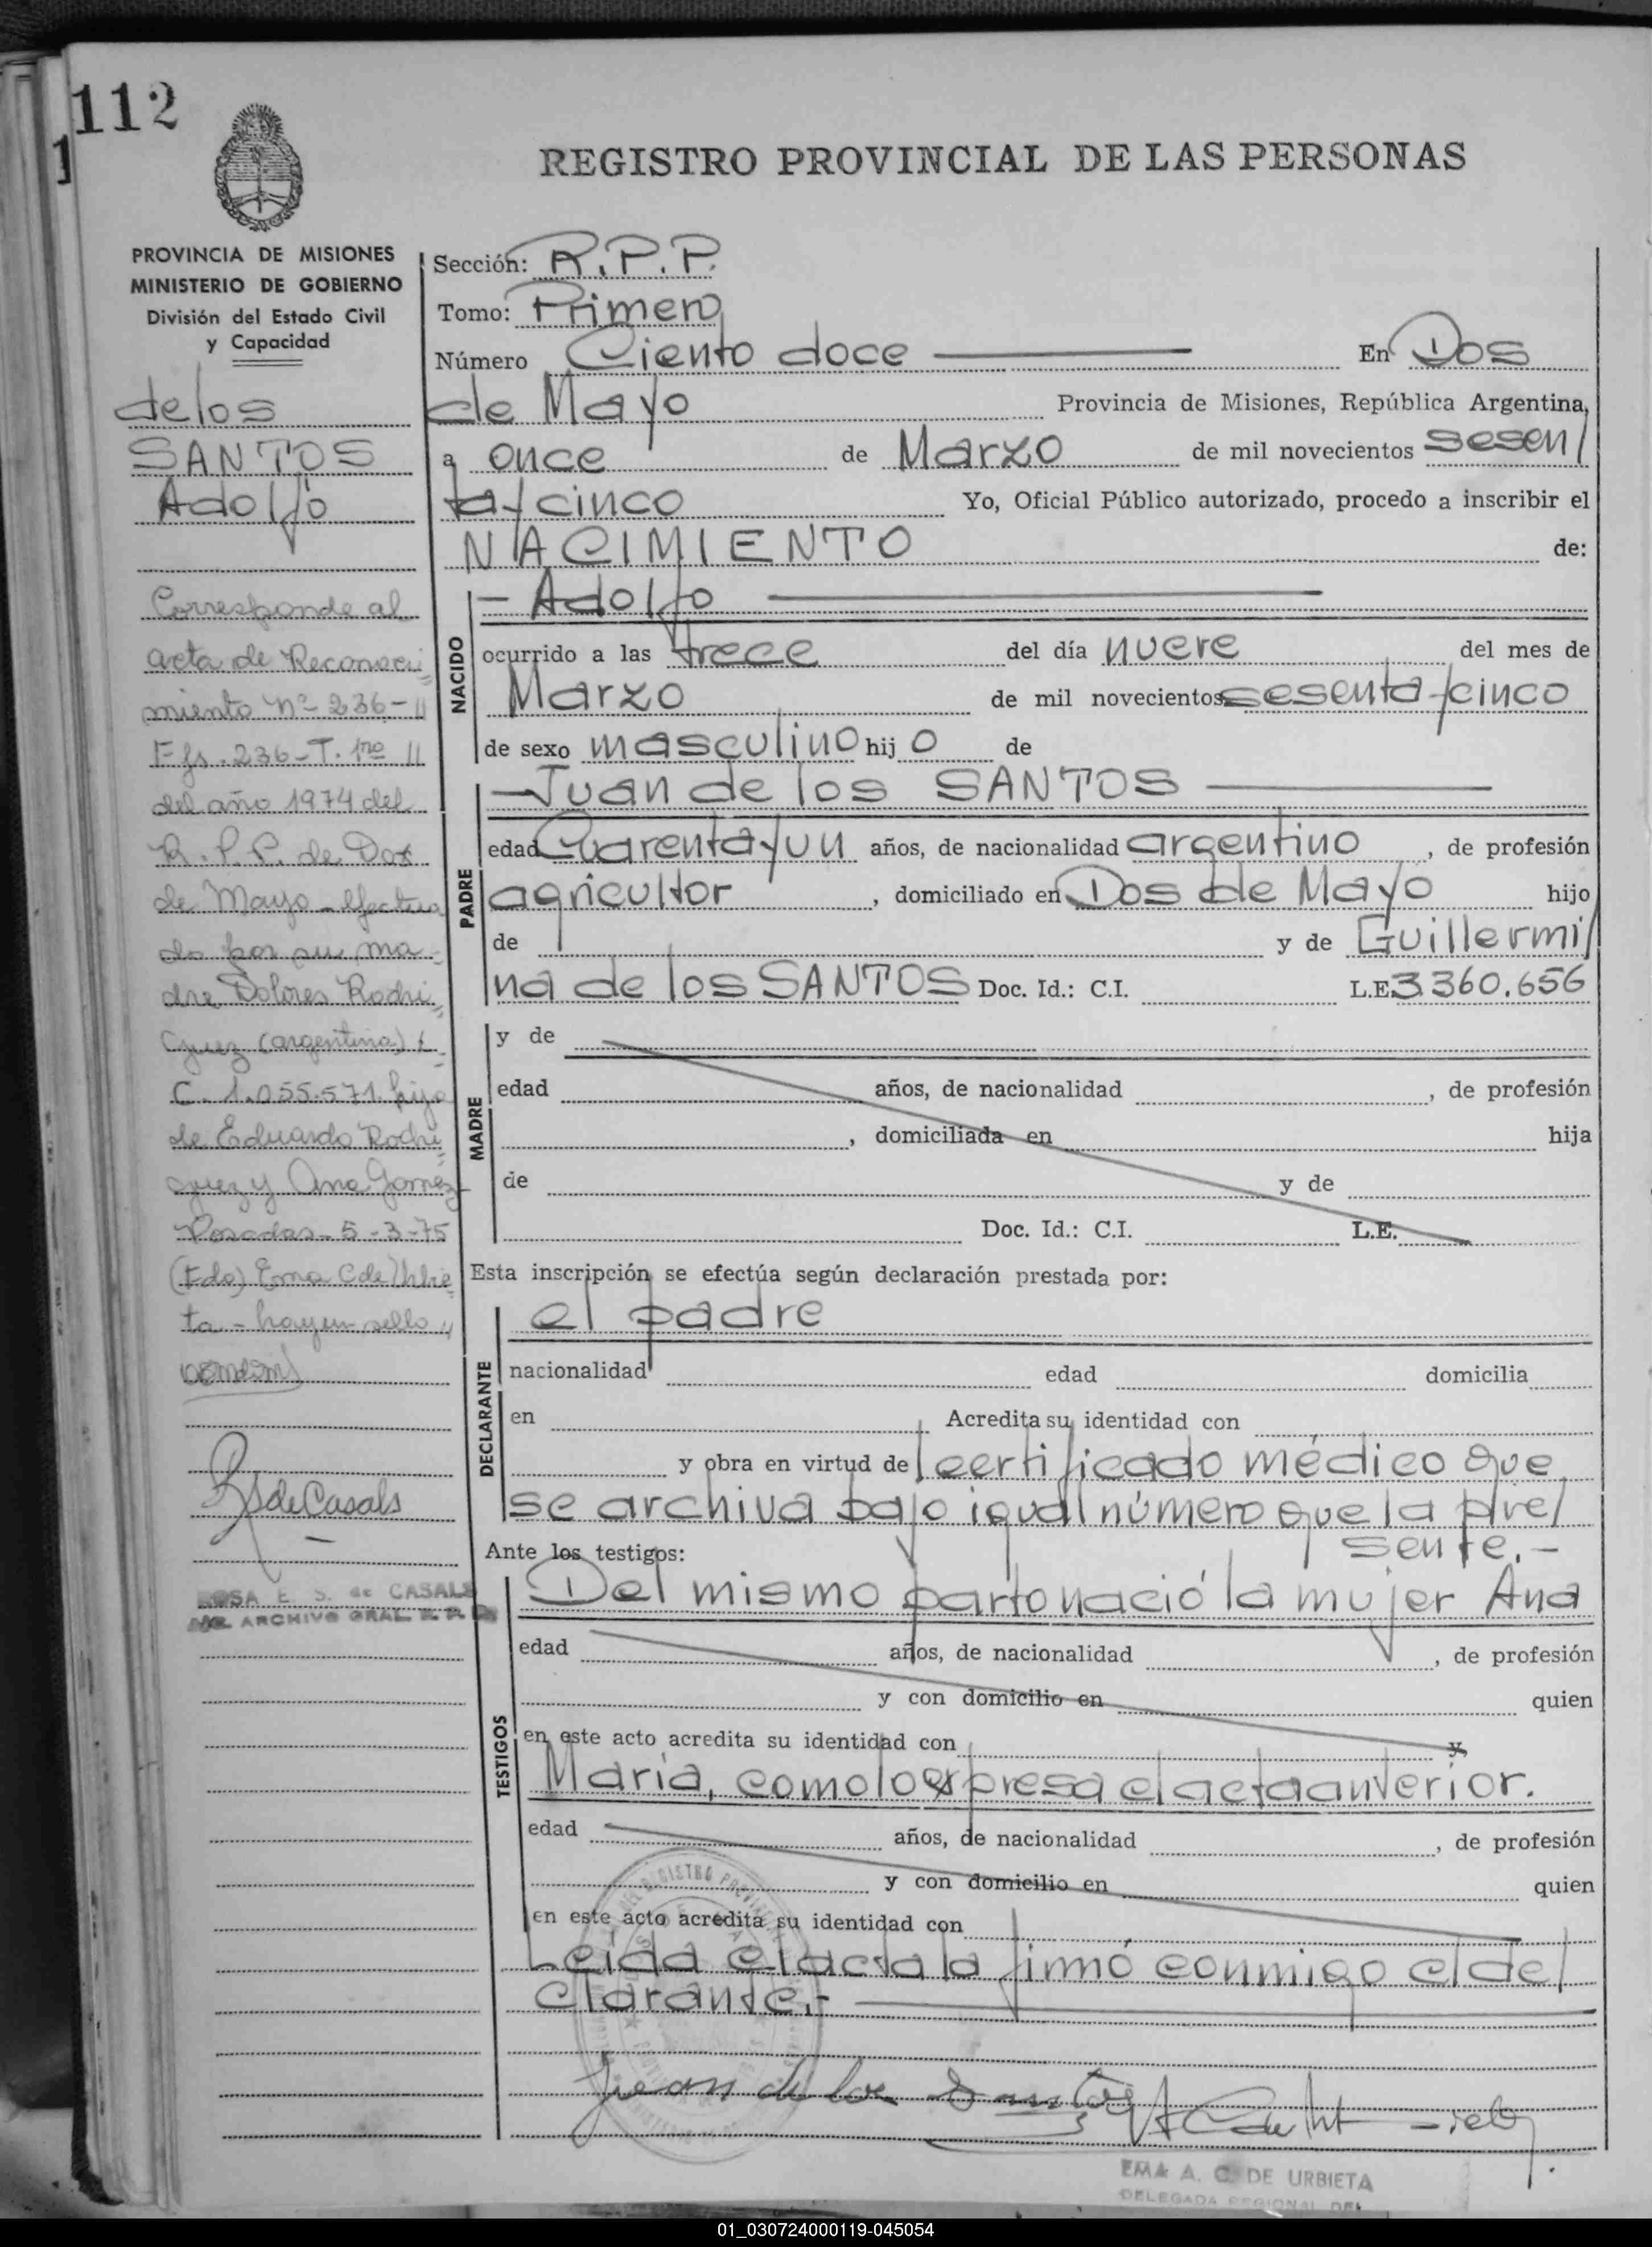 112
1
REGISTRO PROVINCIAL DE LAS PERSONAS
PROVINCIA DE MISIONES
MINISTERIO DE GOBIERNO
División del Estado Civil
y Capacidad
de los
SANTOS
Adolfo
Corresponde al
acta de Reconoci
miento nº 236-
Fº fs. 236-T. 1ro
del año 1974 del
R.P.P. de Dos
de Mayo-efectua
do por su ma-
dre Dolores Rodri
guez (argentina) L.
C. 1.055.571. hija
de Eduardo Rodri
guez y Ana Gomez
Posadas-5-3-75
(Fdo) Ema C de Urbie
ta-hay un sello
RS de Casals
ROSA E. S. de CASALS
ARCHIVO GRAL R. P. P.
Sección: R.P.P.
Tomo: Primero
Número Ciento doce En Dos
de Mayo Provincia de Misiones, República Argentina,
a once de Marzo de mil novecientos sesen/
ta y cinco Yo, Oficial Público autorizado, procedo a inscribir el
NACIMIENTO de:
NACIDO
- Adolfo
ocurrido a las trece del día nueve del mes de
Marzo de mil novecientos sesenta y cinco
de sexo masculino hij o de
PADRE
-Juan de los SANTOS
edad Cuarenta y un años, de nacionalidad argentino, de profesión
agricultor, domiciliado en Dos de Mayo hijo
de y de Guillermi/
na de los SANTOS Doc. Id.: C.I. L.E. 3.360.656
MADRE
y de
edad años, de nacionalidad , de profesión
, domiciliada en hija
de y de
Doc. Id.: C.I. L.E.
Esta inscripción se efectúa según declaración prestada por:
DECLARANTE
el padre
nacionalidad edad domicilia
en Acredita su identidad con
y obra en virtud de certificado médico que
se archiva bajo igual número que la pre/
sente.-
Ante los testigos:
TESTIGOS
Del mismo parto nació la mujer Ana
edad años, de nacionalidad , de profesión
y con domicilio en quien
en este acto acredita su identidad con y,
María, como lo expresa el acta anterior.
edad años, de nacionalidad , de profesión
y con domicilio en quien
en este acto acredita su identidad con
Leída el acta la firmó conmigo el de/
clarante.-
Juan de los Santos
EMA A. C. DE URBIETA
DELEGADA REGIONAL DEL
01_030724000119-045054